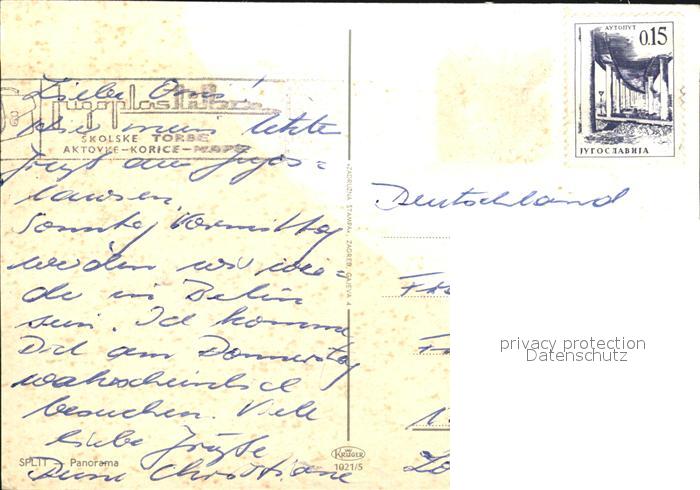 Liebe Omi!
dies mein letzter
Gruß aus Jugos=
lawien.
Sonntag Vormittag
werden wir wie=
der in Berlin
sein. Ich komme
Dich am Donnerstag
wahrscheinlich
besuchen. Viele
liebe Grüße
Deine Christiane
jugoplastika
ŠKOLSKE TORBE
AKTOVKE-KORICE-MAPE
SPLIT Panorama
NAKLADNA ŠTAMPA, ZAGREB, GAJEVA 4
KRÜGER
1021/5
АУТОПУТ
0.15
ЈУГОСЛАВИЈА
Deutschland
privacy protection
Datenschutz